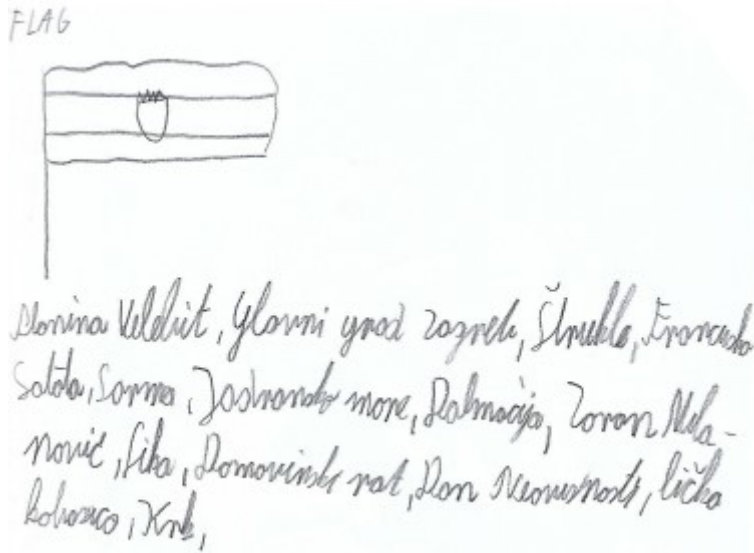 FLAG
Planina Velebit, glavni grad Zagreb, Štrukle, Francuska
Salata, Sarma, Jadransko more, Dalmacija, Zoran Mila-
nović, Lika, Domovinski rat, Dan Neovisnosti, lička
, Krk,